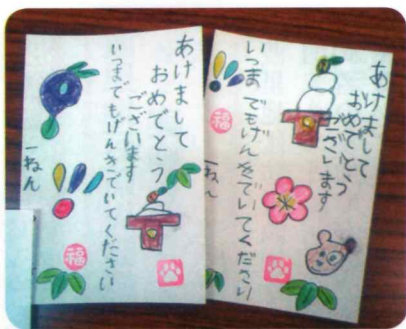 あけまして
おめでとう
ございます
いつまでもげんきでいてください
一ねん
福
あけまして
おめでとう
ございます
いつまでもげんきでいてください
一ねん
福